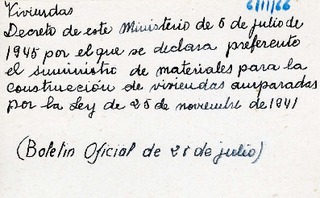 6/11/66
Viviendas
Decreto de este Ministerio de 6 de julio de
1945 por el que se declara preferente
el suministro de materiales para la
construcción de viviendas amparadas
por la Ley de 25 de noviembre de 1941
(Boletin Oficial de 28 de julio)